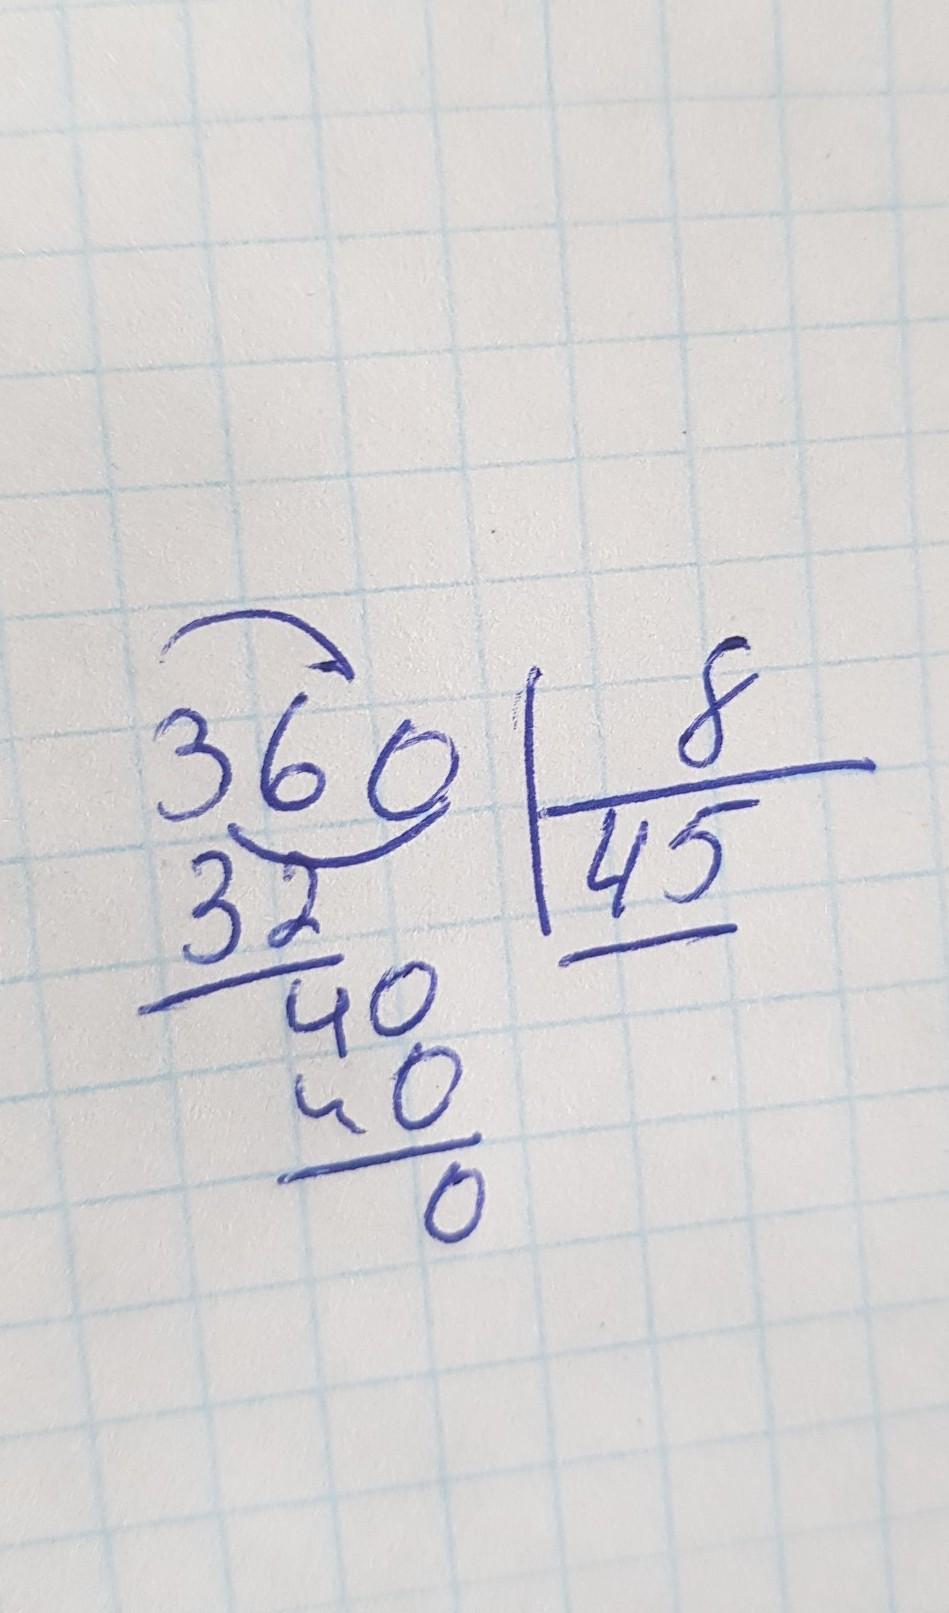 360 8
45
32
40
40
0